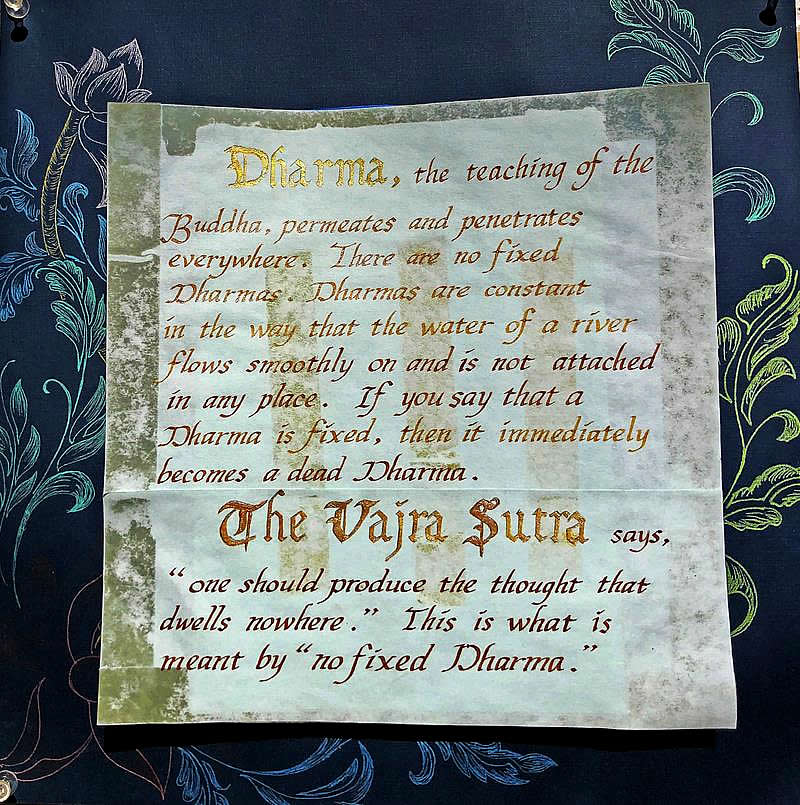 Dharma, the teaching of the
Buddha, permeates and penetrates
everywhere. There are no fixed
Dharmas. Dharmas are constant
in the way that the water of a river
flows smoothly on and is not attached
in any place. If you say that a
Dharma is fixed, then it immediately
becomes a dead Dharma.
The Vajra Sutra says,
“one should produce the thought that
dwells nowhere.” This is what is
meant by “no fixed Dharma.”